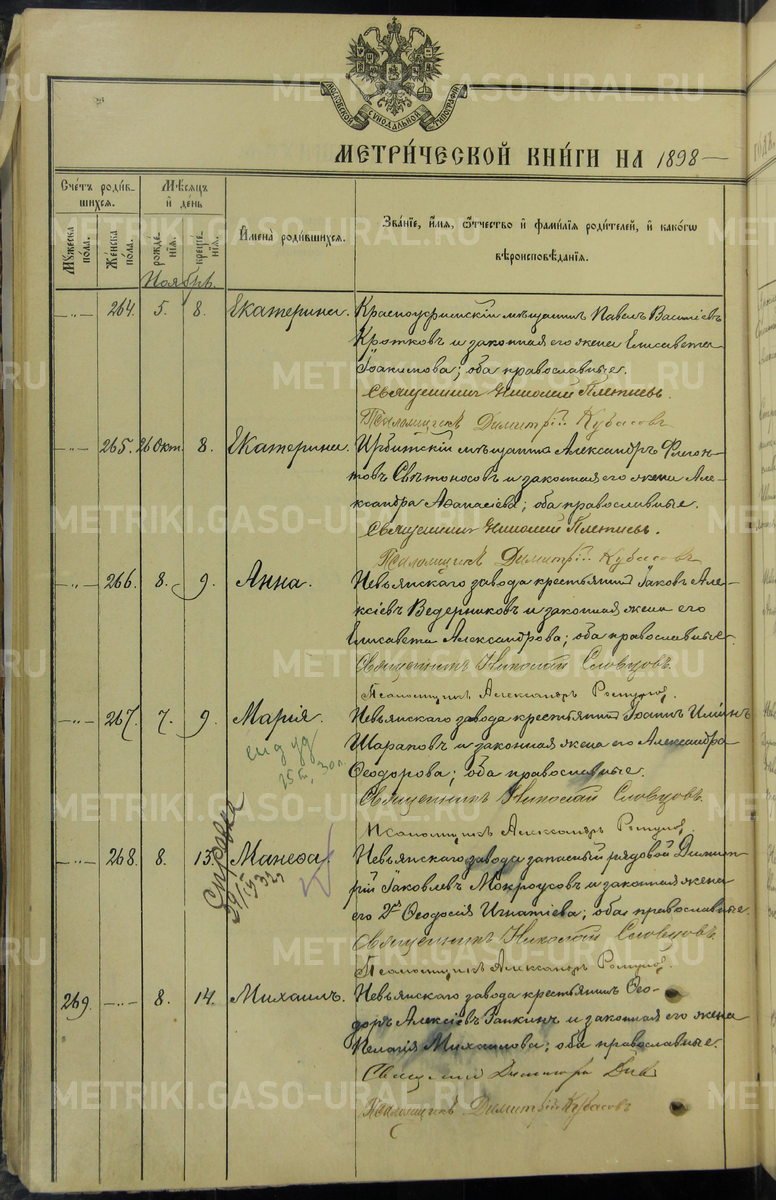 МОСКОВСКОЙ СИНОДАЛЬНОЙ ТИПОГРАФІИ
МЕТРИ́ЧЕСКОЙ КНИ́ГИ НА 1898
Сче́тъ роди́в-
шихся.
Мѣ́сяцъ
и҆ де́нь
И҆мена̀ роди́вшихся.
Зва́нїе, и҆́мя, ѻ҆́тчество и҆ фами́лїя роди́телей, и҆ како́гѡ
вѣроисповѣ́данїя.
Му́жеска по́ла.
Же́нска по́ла.
рожде́нїя.
креще́нїя.
Ноябрь.
-„- 264. 5. 8. Екатерина. Красноуфимскій мѣщанинъ Павелъ Василіевъ
Кротковъ и законная его жена Елисавета
Іоакимова; оба православные.
Священникъ Николай Плетневъ.
Псаломщикъ Димитрій Кубасовъ
-„- 265. 26 Окт. 8. Екатерина. Ирбитскій мѣщанинъ Александръ
Свѣтоносовъ и законная его жена Але-
ксандра Аѳанасіева; оба православные.
Священникъ Николай Плетневъ.
Псаломщикъ Димитрій Кубасовъ
-„- 266. 8. 9. Анна. Невьянскаго завода крестьянинъ Іаковъ Але-
ксіевъ Ведерниковъ и законная жена его
Елисавета Александрова; оба православные.
Священникъ Николай Словцовъ.
Псаломщикъ Александръ
-„- 267. 7. 9. Марія. Невьянскаго завода крестьянинъ Іоаннъ Иліинъ
Шараповъ и законная жена его Александра
Ѳеодорова; оба православные.
Священникъ Николай Словцовъ.
Псаломщикъ Александръ
Справка
-„- 268. 8. 13. Манеѳа. Невьянскаго завода запасный рядовой Димит-
рій Іаковлевъ Мокроусовъ и законная жена
его Ѳеодосія Игнатіева; оба православные.
Священникъ Николай Словцовъ.
Псаломщикъ Александръ
269. -„- 8. 14. Михаилъ. Невьянскаго завода крестьянинъ Ѳео-
доръ Алексіевъ и законная его жена
Пелагія Михаилова; оба православные.
Священникъ
Псаломщикъ Димитрій Кубасовъ
METRIKI.GASO-URAL.RU